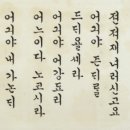 져재 녀러신고요
어긔야 즌ᄃᆡᄅᆞᆯ
드ᄃᆡ욜셰라
어긔야 어강됴리
어느이다 노코시라
어긔야 내 가논ᄃᆡ